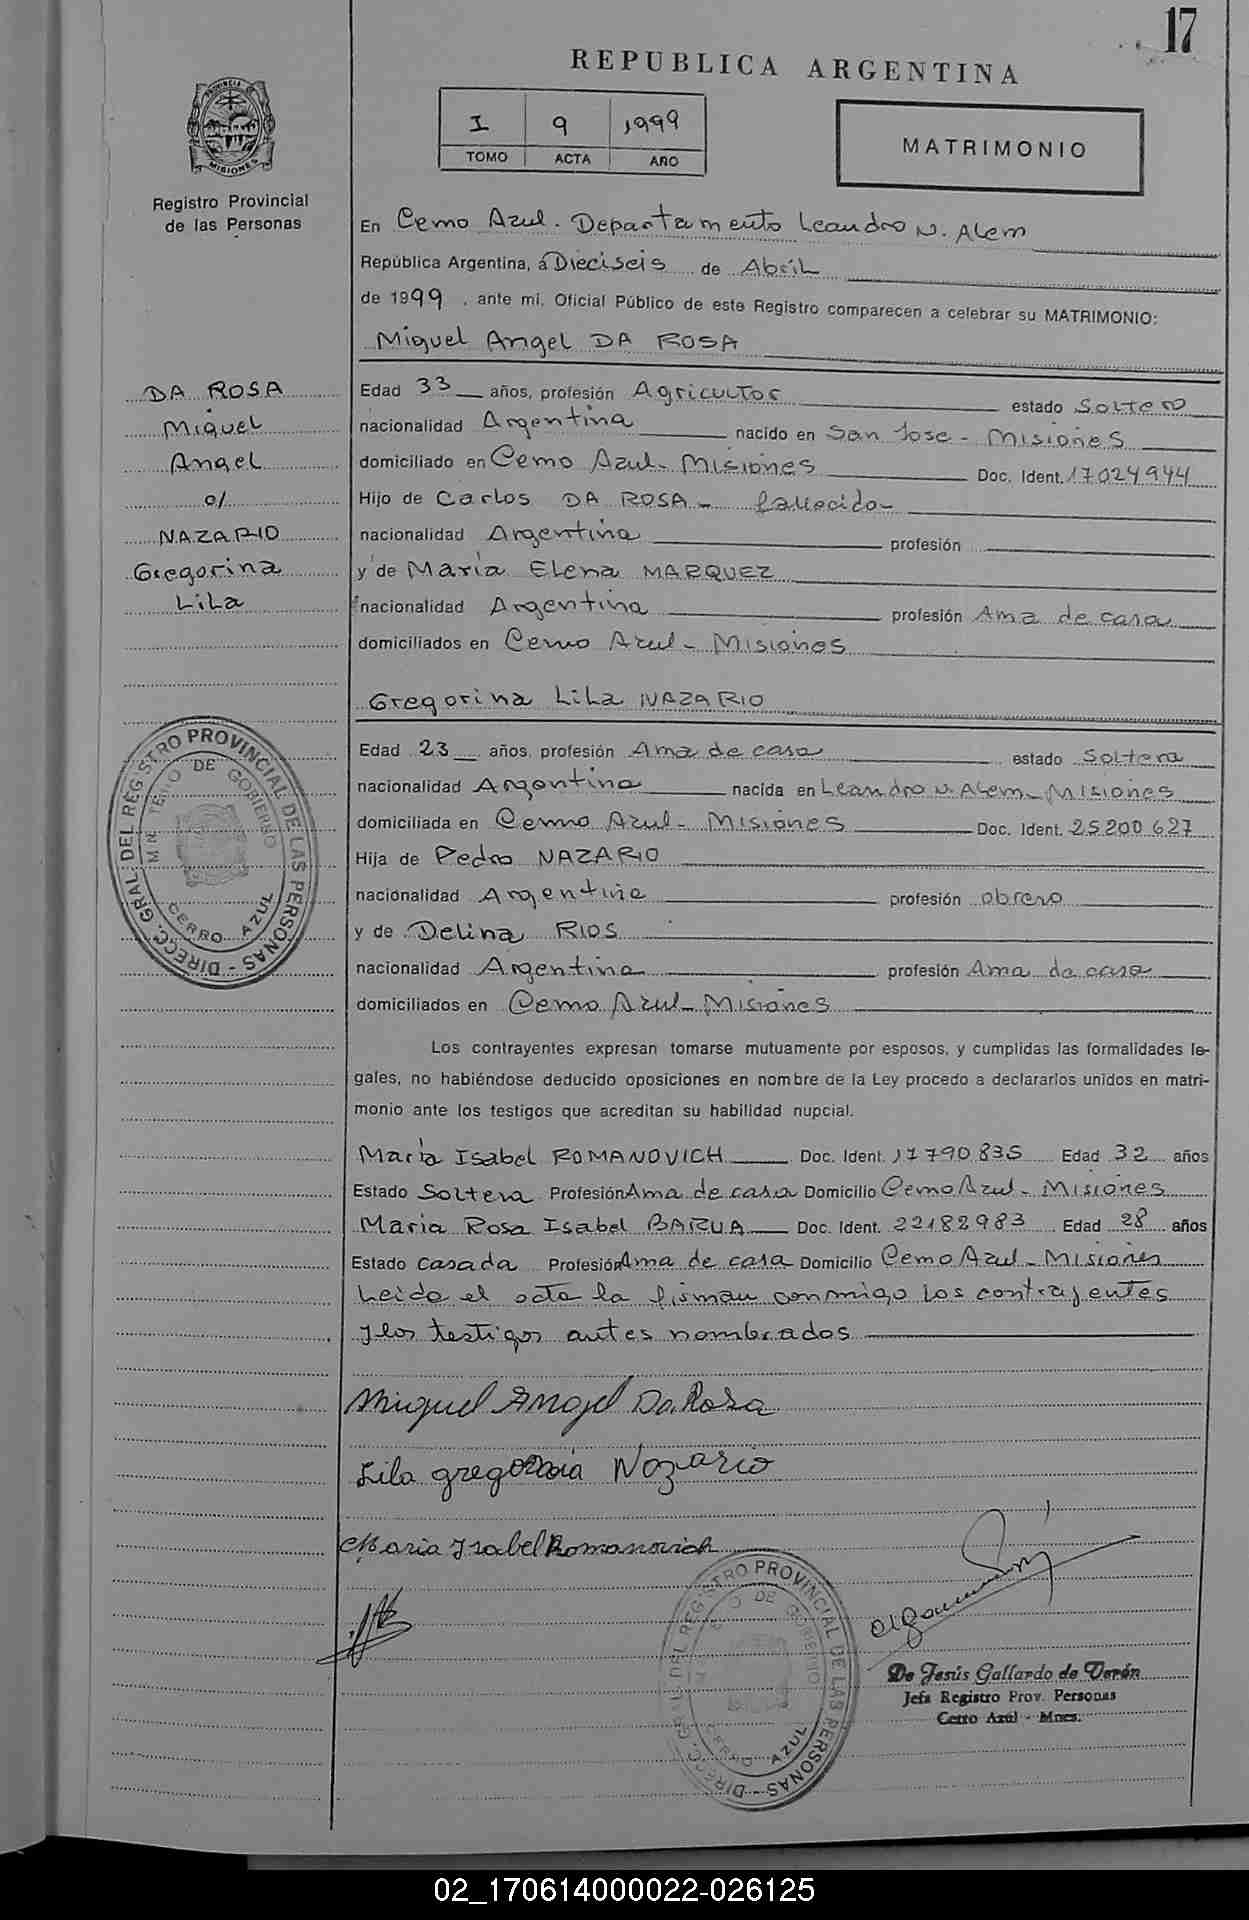 17
REPUBLICA ARGENTINA
PROVINCIA DE MISIONES
I 9 1999
TOMO ACTA AÑO
MATRIMONIO
Registro Provincial
de las Personas
En Cerro Azul. Departamento Leandro N. Alem
República Argentina, a Dieciseis de Abril
de 1999, ante mi, Oficial Público de este Registro comparecen a celebrar su MATRIMONIO:
Miguel Angel DA ROSA
DA ROSA
Miguel
Angel
c/
NAZARIO
Gregorina
Lila
Edad 33 años, profesión Agricultor estado Soltero
nacionalidad Argentina nacido en San Jose - Misiones
domiciliado en Cerro Azul - Misiones Doc. Ident. 17024944
Hijo de Carlos DA ROSA - fallecido -
nacionalidad Argentina profesión
y de María Elena MARQUEZ
nacionalidad Argentina profesión Ama de casa
domiciliados en Cerro Azul - Misiones
Gregorina Lila NAZARIO
Edad 23 años, profesión Ama de casa estado Soltera
nacionalidad Argentina nacida en Leandro N. Alem - Misiones
domiciliada en Cerro Azul - Misiones Doc. Ident. 25200627
Hija de Pedro NAZARIO
nacionalidad Argentina profesión obrero
y de Delina RIOS
nacionalidad Argentina profesión Ama de casa
domiciliados en Cerro Azul - Misiones
DIRECC. GRAL. DEL REGISTRO PROVINCIAL DE LAS PERSONAS -
DE GOBIERNO
CERRO AZUL
Los contrayentes expresan tomarse mutuamente por esposos, y cumplidas las formalidades le-
gales, no habiéndose deducido oposiciones en nombre de la Ley procedo a declararlos unidos en matri-
monio ante los testigos que acreditan su habilidad nupcial.
María Isabel ROMANOVICH Doc. Ident. 17790835 Edad 32 años
Estado Soltera Profesión Ama de casa Domicilio Cerro Azul - Misiones
Maria Rosa Isabel BARUA Doc. Ident. 22182983 Edad 28 años
Estado casada Profesión Ama de casa Domicilio Cerro Azul - Misiones
Leida el acta la firman conmigo los contrayentes
y los testigos antes nombrados
Miguel Angel Da Rosa
Lila gregorina Nazario
Maria Isabel Romanovich
DIRECC. GRAL. DEL REGISTRO PROVINCIAL DE LAS PERSONAS -
DE GOBIERNO
CERRO AZUL
De Jesús Gallardo de Verón
Jefa Registro Prov. Personas
Cerro Azúl - Mnes.
02_170614000022-026125